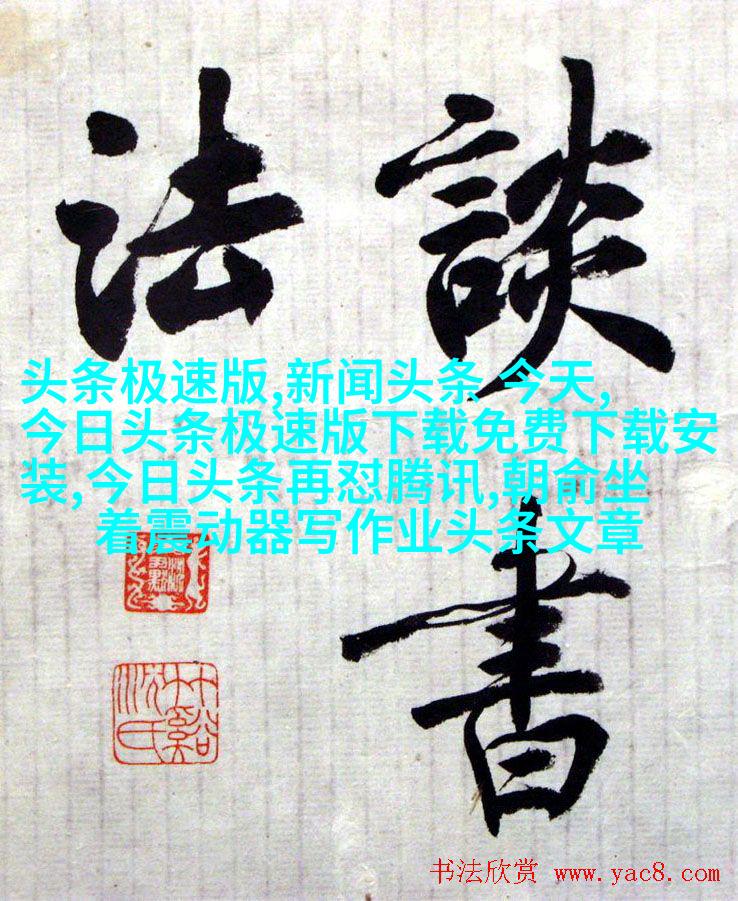 談書
法
头条极速版,新闻头条 今天,
今日头条极速版下载免费下载安
装,今日头条再怼腾讯,朝俞坐
着震动器写作业头条文章
书法欣赏 www.yac8.com